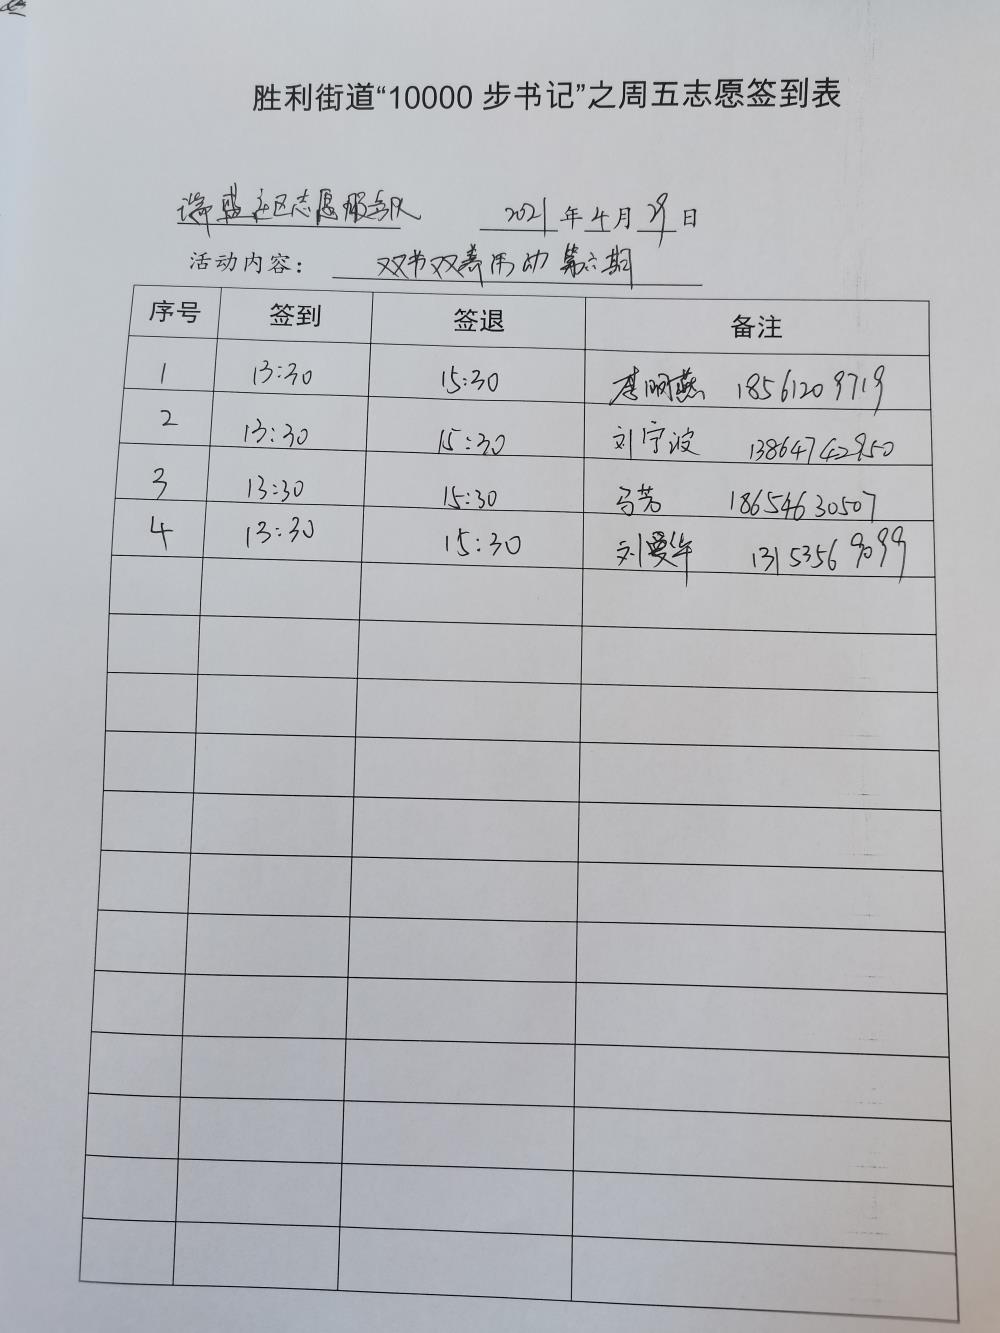 胜利街道“10000 步书记”之周五志愿签到表
瑞盛社区志愿服务队 2021 年 4 月 29 日
活动内容： 双书双善活动 第六期
序号 签到 签退 备注
1 13:30 15:30 李丽燕 18561209719
2 13:30 15:30 刘宁波 13864742950
3 13:30 15:30 马芳 18654630507
4 13:30 15:30 刘曼华 13153569099